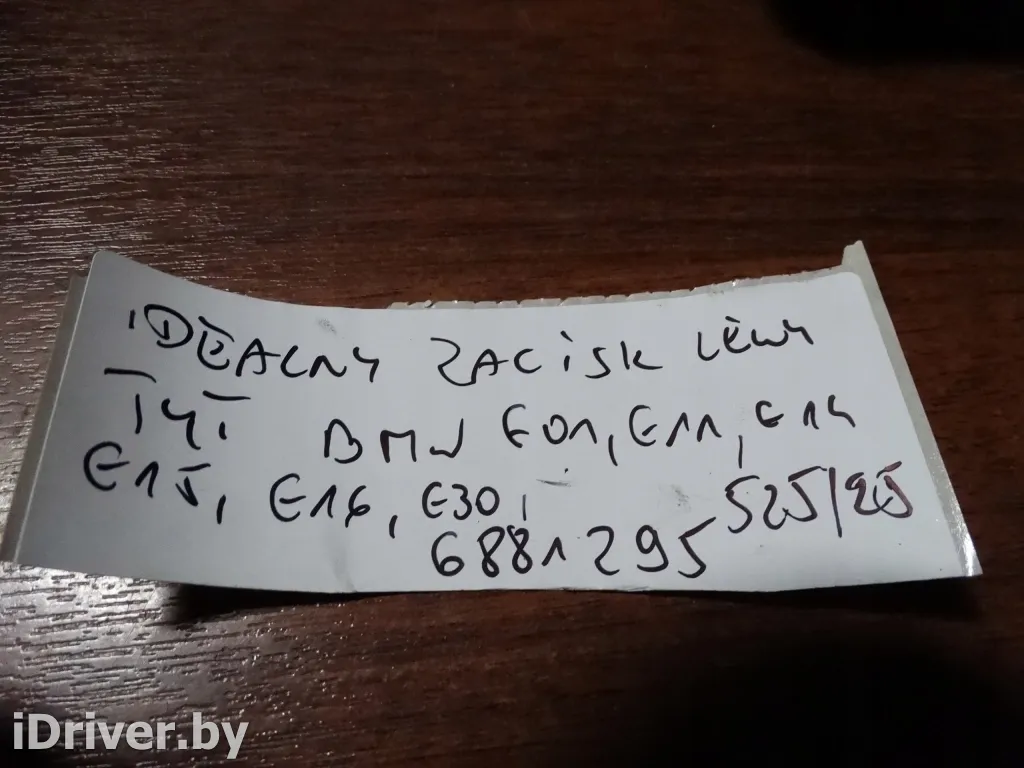 IDEALNY ZACISK LEWY
TYŁ BMW G01, G11, G14
G15, G16, G30,
6881295 525/25
iDriver.by